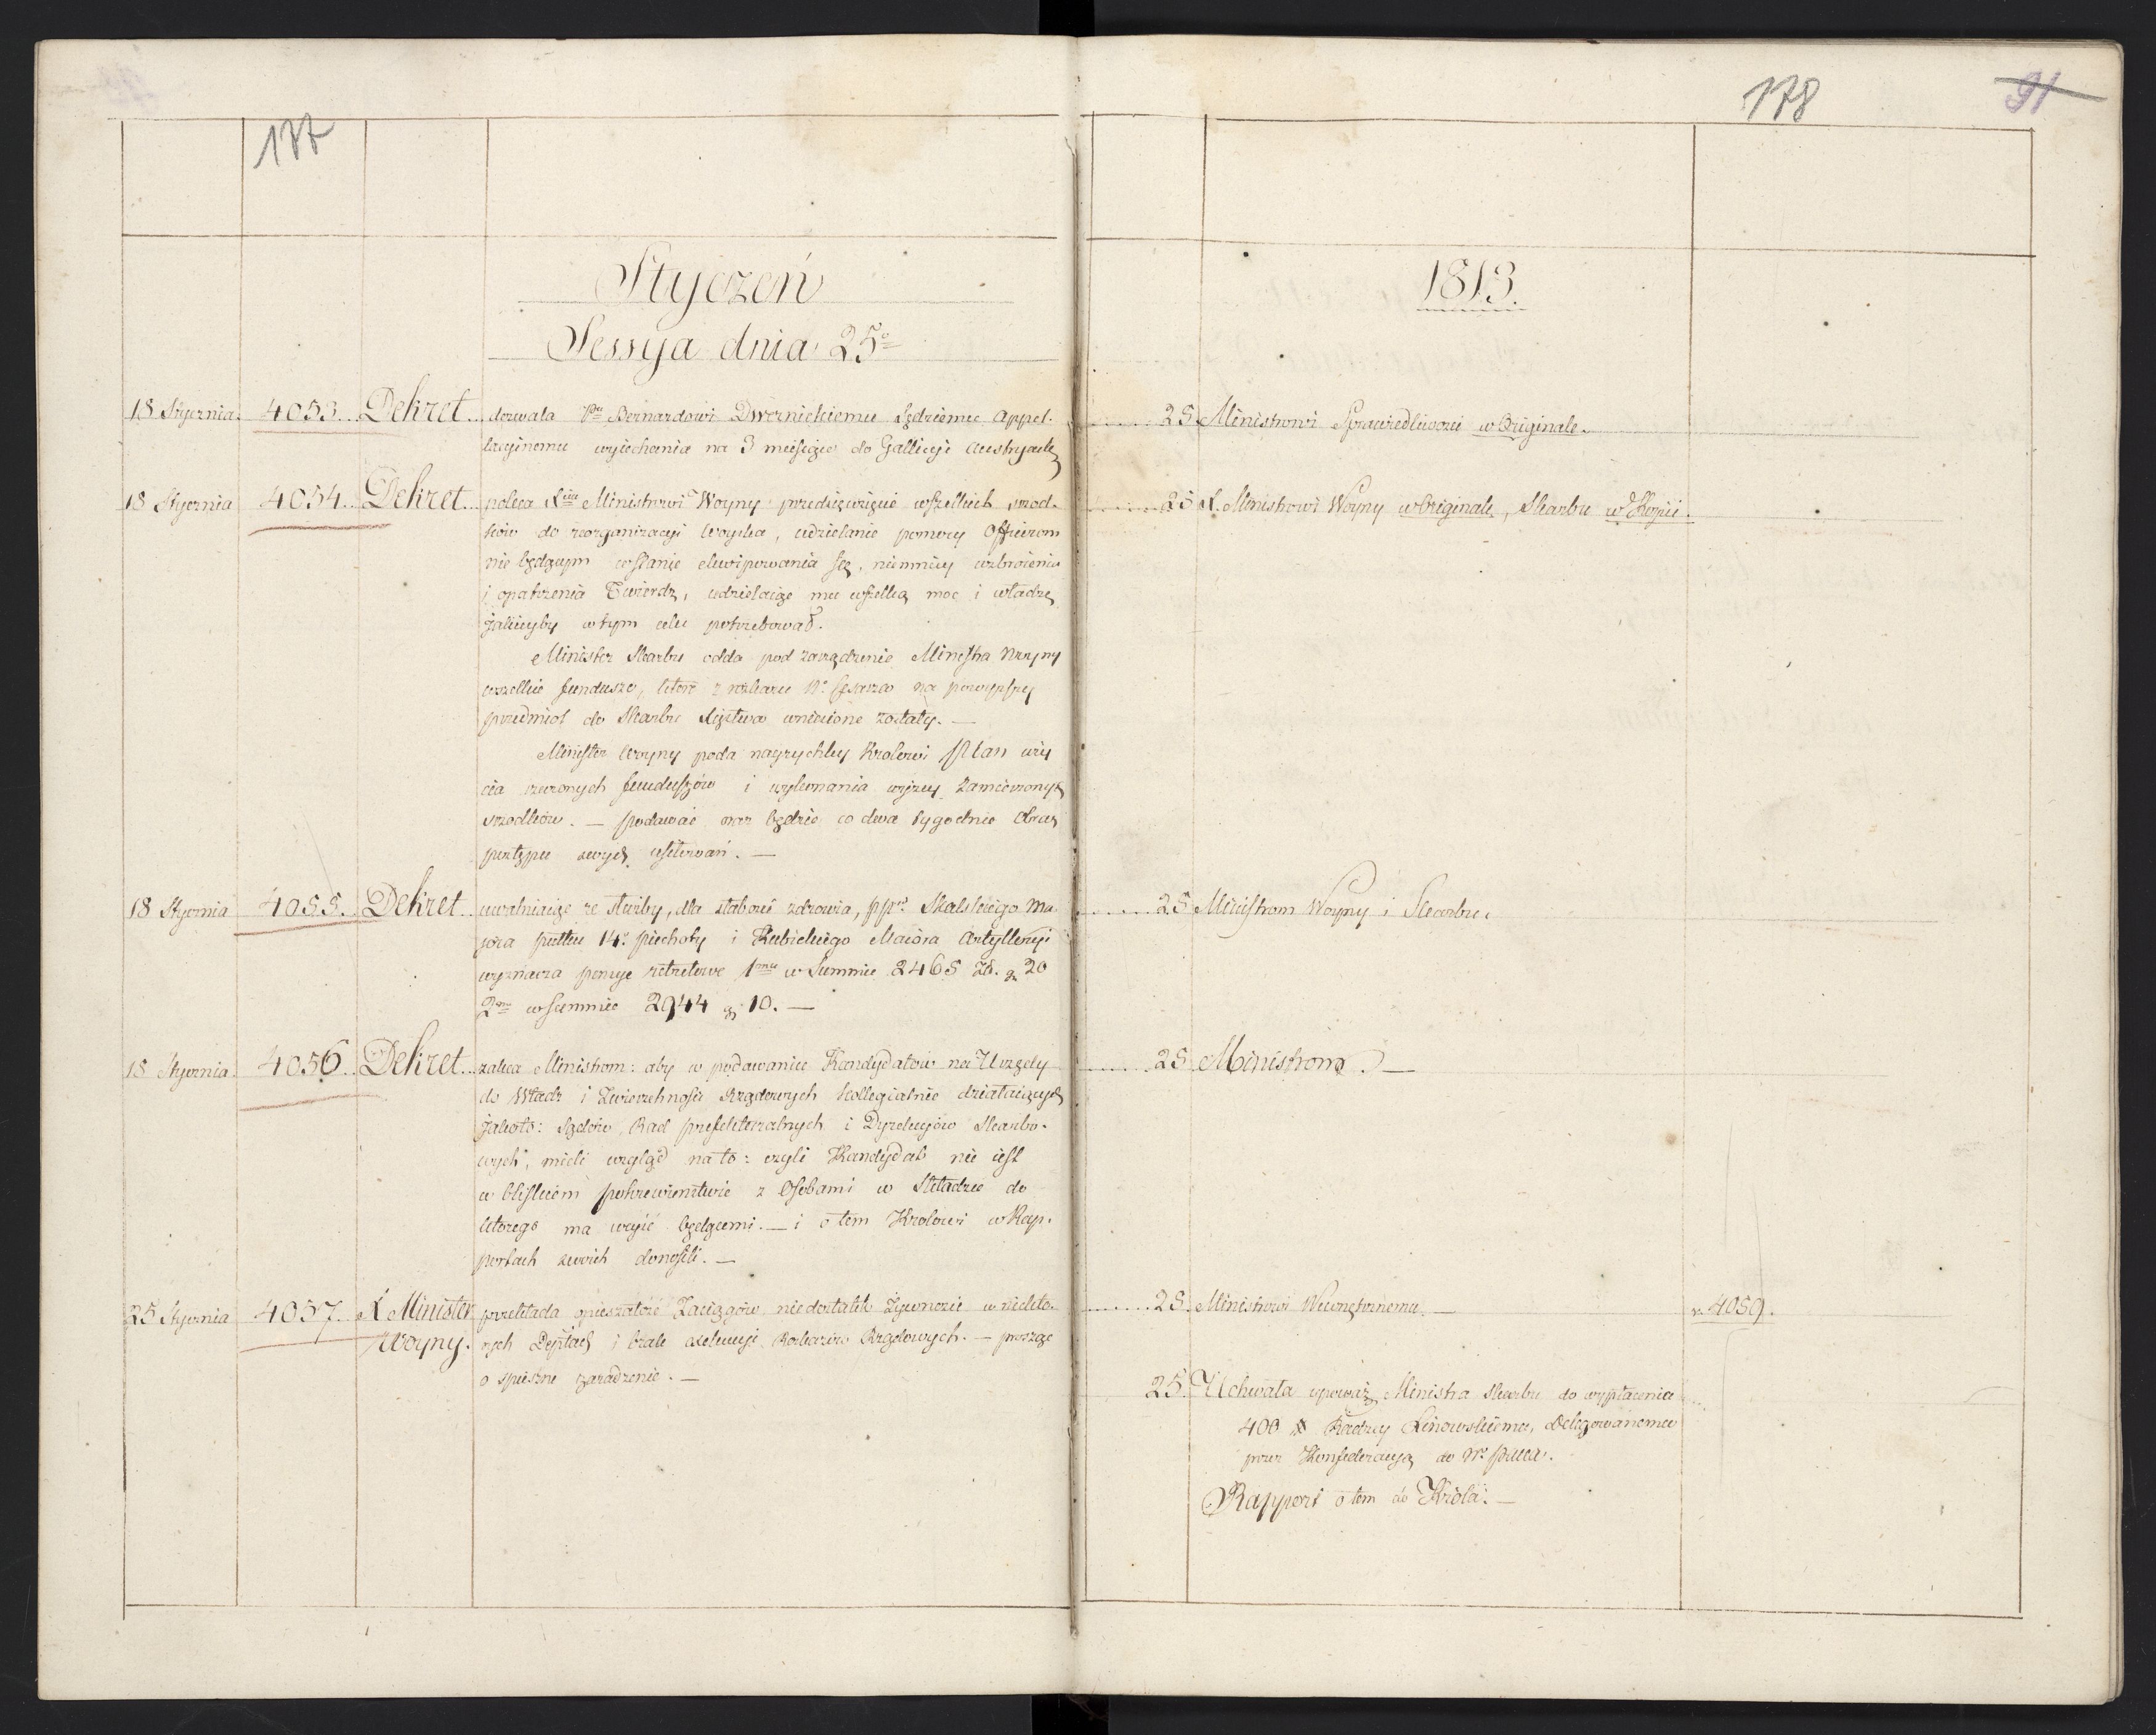 177
Styczeń
Sessya dnia 25º
18 Stycznia. 4053. Dekret dozwala Pnu Bernardowi Dwernickiemu Sędziemu Appel-
lacyinemu wyiechania na 3 miesiące do Gallicyi Austryack
18 Stycznia 4054. Dekret poleca Xciu Ministrowi Woyny przedsięwzięcie wszelkich środ-
ków do reorganizacyi Woyska, udzielanie pomocy Officerom
nie będącym wstanie ekwipowania się, niemniey uzbroienia
i opatrzenia Twierdz, udzielaiąc mu wszelką moc i władzę
jakieyby wtym celu potrzebował.
Minister Skarbu odda pod zarządzenie Ministra Woyny
wszelkie fundusze, które z rozkazu Nº Cesarza na powyższy
przedmiot do Skarbu Xięstwa wniesione zostały. —
Minister Woyny poda nayrychley Krolowi Plan uży
cia rzeczonych funduszów i wykonania wyżey zamierzonych
srzodków. — podawać oraz będzie co dwa tygodnie Obraz
postępu swych usiłowań. —
18 Stycznia 4055. Dekret uwalniaiąc ze służby, dla słabości zdrowia, ppnw Skalskiego Ma-
jora pułku 14º piechoty i Kubickiego Maiora Artylleryi
wyznacza pensye retretowe 1mu w Summie 2465 Zł. gr 20
2mu w summie 2944 gr 10. —
18 Stycznia. 4056. Dekret zaleca Ministrom: aby w podawaniu Kandydatów na Urzędy
do Władz i Zwierzchności Rządowych kollegialnie działaiących
jakoto: Sądów, Rad prefekturalnych i Dyrekcyiów Skarbo-
wych, mieli wzgląd na to: czyli Kandydat nie iest
w bliskiem pokrewieństwie z Osobami w Składzie do
którego ma wejść będącemi. — i o tem Krolowi w Rap-
portach swoich donosili. —
25 Stycznia 4057. X Minister przekłada opieszałość Zaciągów, niedostatek Żywności w niekto-
Woyny. rych Deptach i brak exekucyi Rozkazów Rządowych. — prosząc
o spieszne zaradzenie. —
178
91
1813.
25 Ministrowi Sprawiedliwości w Originale.
25 X. Ministrowi Woyny w Originale, Skarbu w Kopii.
25 Ministrom Woyny i Skarbu.
25 Ministrom —
25. Ministrowi Wewnętrznemu. — v. 4059.
25. Uchwała upoważ. Ministra Skarbu do wypłacenia
400 # Radzcy Linowskiemu, Delegowanemu
przez Konfederacyą do
Rapport o tem do Króla. —